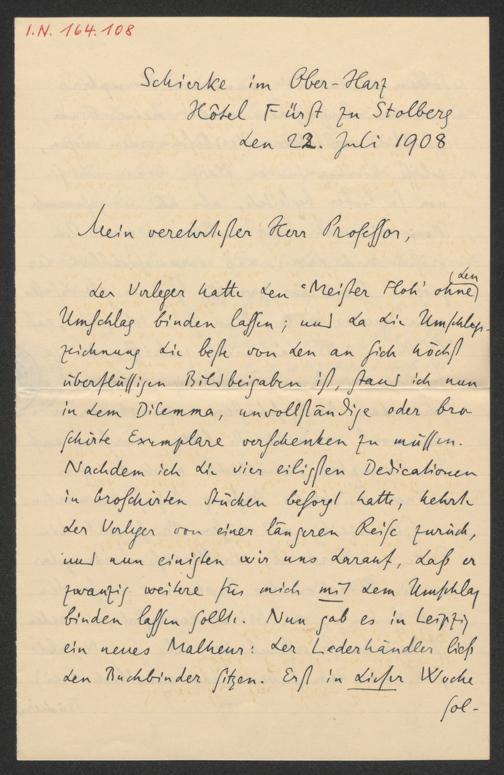 I.N. 164.108
Schierke im Ober-Harz
Hôtel Fürst zu Stolberg
den 22. Juli 1908
Mein verehrtester Herr Professor,
der Verleger hatte den "Meister Floh" ohne (den
Umschlag binden lassen; und da die Umschlag-
zeichnung die beste von den an sich höchst
überflüssigen Bildbeigaben ist, stand ich nun
in dem Dilemma, unvollständige oder bro
schirte Exemplare verschenken zu müssen.
Nachdem ich die vier eiligsten Dedicationen
in broschirten Stücken besorgt hatte, kehrte
der Verleger von einer längeren Reise zurück,
und nun einigten wir uns darauf, daß er
zwanzig weitere für mich mit dem Umschlag
binden lassen sollte. Nun gab es in Leipzig
ein neues Malheur: der Lederhändler ließ
den Buchbinder sitzen. Erst in dieser Woche
sol-